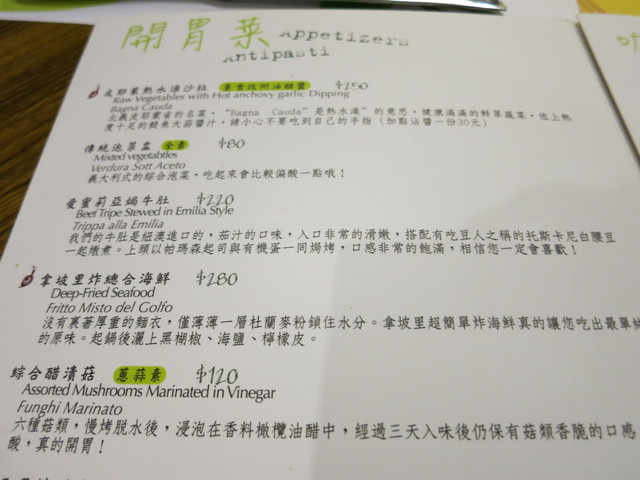 開胃菜 Appetizers
Antipasti
皮耶蒙熱水澡沙拉 素食改附油醋醬 $250
Raw Vegetables with Hot anchovy garlic Dipping
Bagna Cauda
北義皮耶蒙省的名菜，“Bagna Cauda”是熱水澡”的意思，健康滿滿的鮮翠蔬菜，佐上熱
度十足的鯷魚大蒜醬汁，請小心不要吃到自己的手指（加點沾醬一份30元）
傳統泡菜盅 全素 $80
Mixed vegetabtles
Verdura Sott Aceto
義大利式的綜合泡菜，吃起來會比較偏酸一點哦！
愛蜜莉亞焗牛肚 $220
Beef Tripe Stewed in Emilia Style
Trippa alla Emilia
我們的牛肚是紐澳進口的，茄汁的口味，入口非常的滑嫩，搭配有吃豆人之稱的托斯卡尼白腰豆
一起燉煮。上頭以帕瑪森起司與有機蛋一同焗烤，口感非常的飽滿，相信您一定會喜歡！
拿坡里炸總合海鮮 $280
Deep-Fried Seafood
Fritto Misto del Golfo
沒有裹著厚重的麵衣，僅薄薄一層杜蘭麥粉鎖住水分。拿坡里超簡單炸海鮮真的讓您吃出最單純
的原味。起鍋後灑上黑楜椒、海鹽、檸檬皮。
綜合醋漬菇 蔥蒜素 $120
Assorted Mushrooms Marinated in Vinegar
Funghi Marinato
六種菇類，慢烤脫水後，浸泡在香料橄欖油醋中，經過三天入味後仍保有菇類香脆的口感
酸，真的開胃！